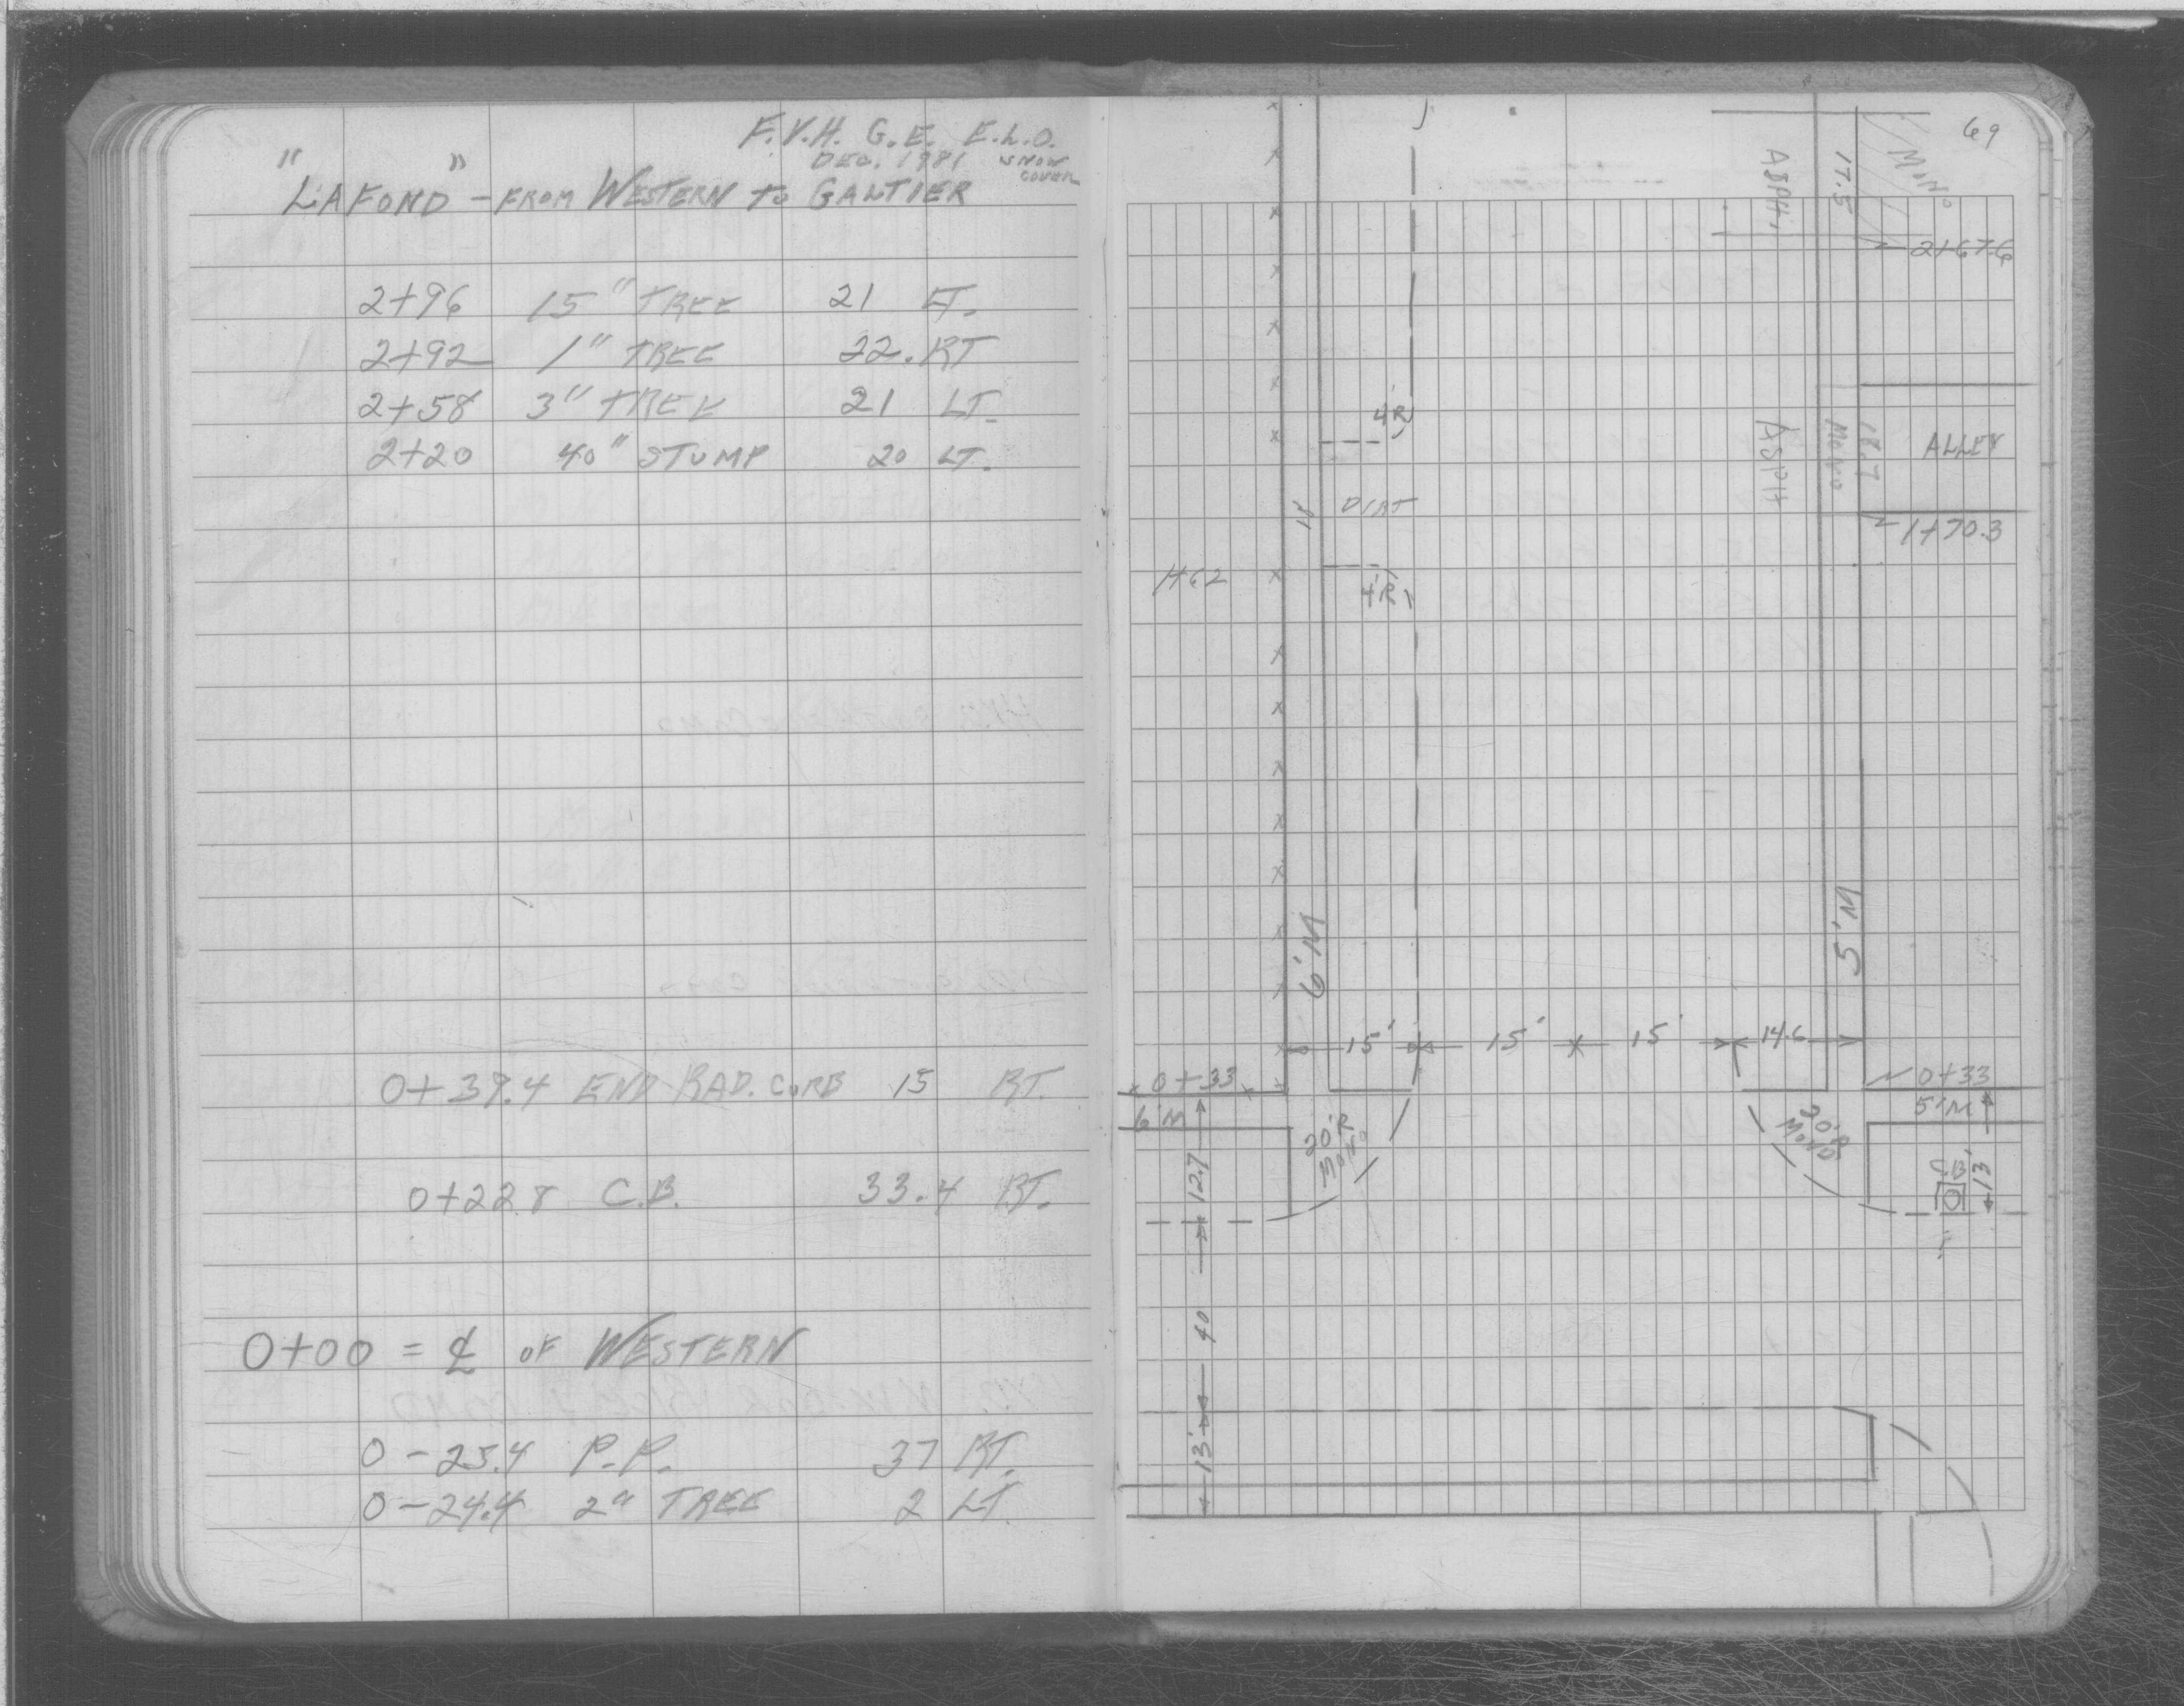 F.V.H. G.E. E.L.O.
DEC. 1981 SNOW COVER
"LAFOND" - FROM WESTERN TO GALTIER
2+96 15" TREE 21 LT.
2+92 1" TREE 22. RT
2+58 3" TREE 21 LT.
2+20 40" STUMP 20 LT.
0+39.4 END RAD. CURB 15 RT.
0+22.8 C.B. 33.4 RT.
0+00 = ℄ OF WESTERN
0-25.4 P.P. 37 RT.
0-24.4 2" TREE 2 LT.
69
ASPH.
17.5
MONO
2+67.6
4R
ASPH
MONO
18.7
ALLEY
11
DIRT
1+70.3
1+62
4R
6'M
5'M
15' 15' 15' 14.6
0+33
0+33
6'M
5'M
20'R
MONO
20'R
MONO
12.7
C.B.
13'
40
13'